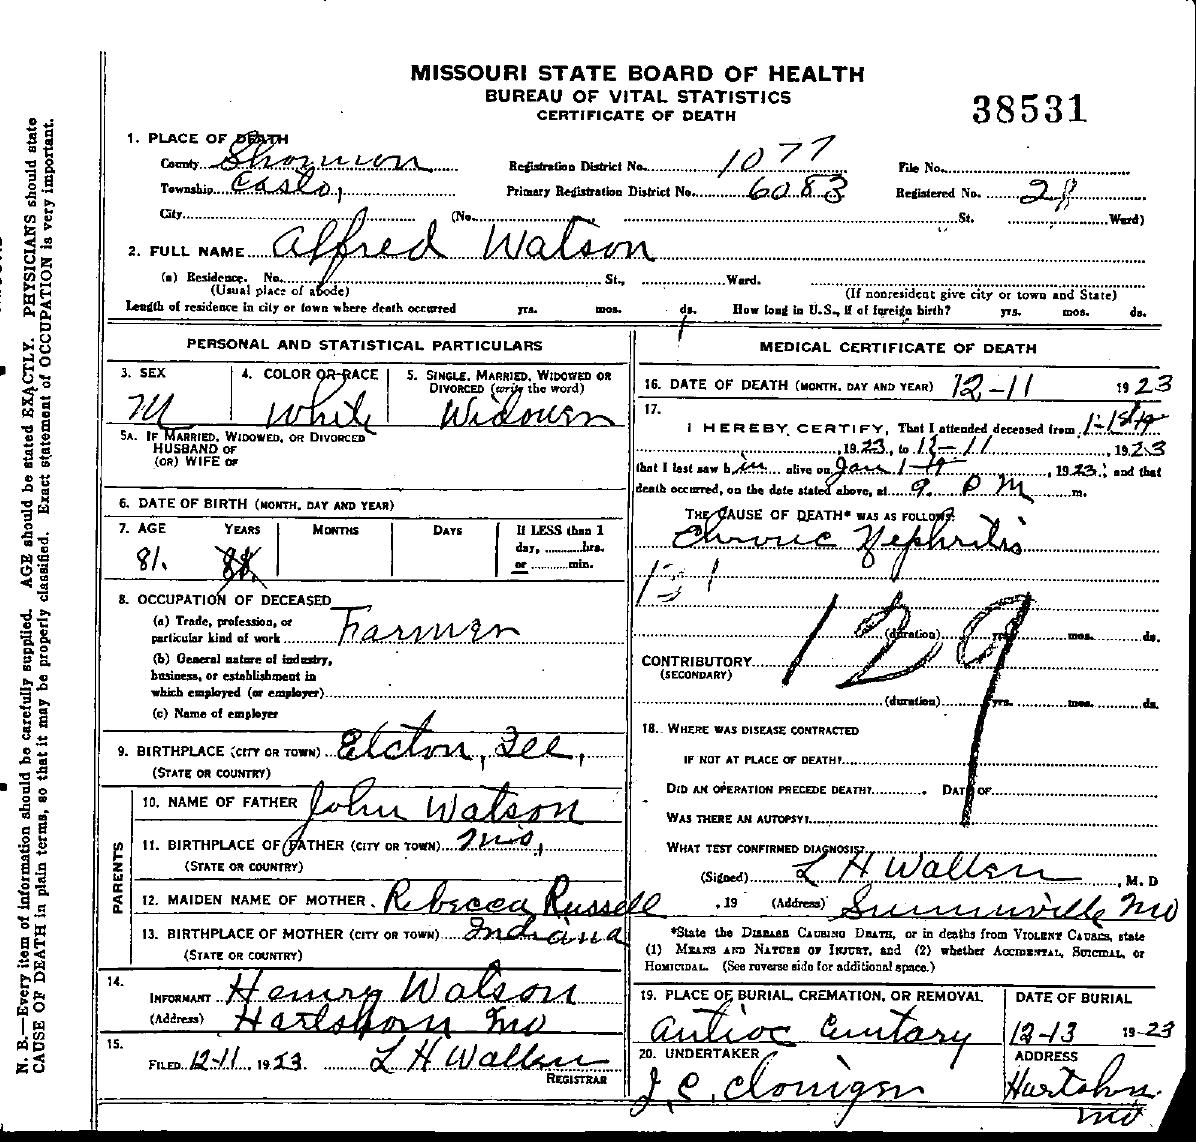 MISSOURI STATE BOARD OF HEALTH
BUREAU OF VITAL STATISTICS
CERTIFICATE OF DEATH
38531
1. PLACE OF DEATH
County Shannon
Registration District No. 1077
File No.
Township Casto,
Primary Registration District No. 6083
Registered No. 28
City (No. St. Ward)
2. FULL NAME Alfred Watson
(a) Residence. No. St., Ward.
(Usual place of abode)
(If nonresident give city or town and State)
Length of residence in city or town where death occurred yrs. mos. ds. How long in U.S., if of foreign birth? yrs. mos. ds.
PERSONAL AND STATISTICAL PARTICULARS
3. SEX
M
4. COLOR OR RACE
White
5. SINGLE, MARRIED, WIDOWED OR
DIVORCED (write the word)
Widower
5A. IF MARRIED, WIDOWED, OR DIVORCED
HUSBAND OF
(OR) WIFE OF
6. DATE OF BIRTH (MONTH, DAY AND YEAR)
7. AGE YEARS MONTHS DAYS If LESS than 1
day, hrs.
or min.
81.
8. OCCUPATION OF DECEASED
(a) Trade, profession, or
particular kind of work Farmer
(b) General nature of industry,
business, or establishment in
which employed (or employer)
(c) Name of employer
9. BIRTHPLACE (CITY OR TOWN) Elcton, Ill,
(STATE OR COUNTRY)
PARENTS
10. NAME OF FATHER John Watson
11. BIRTHPLACE OF FATHER (CITY OR TOWN) Mis,
(STATE OR COUNTRY)
12. MAIDEN NAME OF MOTHER. Rebecca Russell
13. BIRTHPLACE OF MOTHER (CITY OR TOWN) Indiana
(STATE OR COUNTRY)
14.
INFORMANT Henry Watson
(Address) Hartshorn Mo
15.
FILED 12-11, 1923 L H Wallen
REGISTRAR
MEDICAL CERTIFICATE OF DEATH
16. DATE OF DEATH (MONTH, DAY AND YEAR) 12-11 1923
17.
I HEREBY CERTIFY, That I attended deceased from
, 1923, to 12-11, 1923
that I last saw him alive on Jan 1-, 1923, and that
death occurred, on the date stated above, at 9. P M m.
THE CAUSE OF DEATH* WAS AS FOLLOWS:
Chronic Nephritis
131
129
(duration) yrs. mos. ds.
CONTRIBUTORY
(SECONDARY)
(duration) yrs. mos. ds.
18. WHERE WAS DISEASE CONTRACTED
IF NOT AT PLACE OF DEATH?
DID AN OPERATION PRECEDE DEATH? DATE OF
WAS THERE AN AUTOPSY?
WHAT TEST CONFIRMED DIAGNOSIS?
(Signed) L H Wallen, M. D
, 19 (Address) Summerville Mo
*State the DISEASE CAUSING DEATH, or in deaths from VIOLENT CAUSES, state
(1) MEANS AND NATURE OF INJURY, and (2) whether ACCIDENTAL, SUICIDAL, or
HOMICIDAL. (See reverse side for additional space.)
19. PLACE OF BURIAL, CREMATION, OR REMOVAL
Antioc Cemtary
DATE OF BURIAL
12-13 1923
20. UNDERTAKER
J. C. Clonigen
ADDRESS
Hartshorn
Mo
N. B.—Every item of information should be carefully supplied. AGE should be stated EXACTLY. PHYSICIANS should state
CAUSE OF DEATH in plain terms, so that it may be properly classified. Exact statement of OCCUPATION is very important.